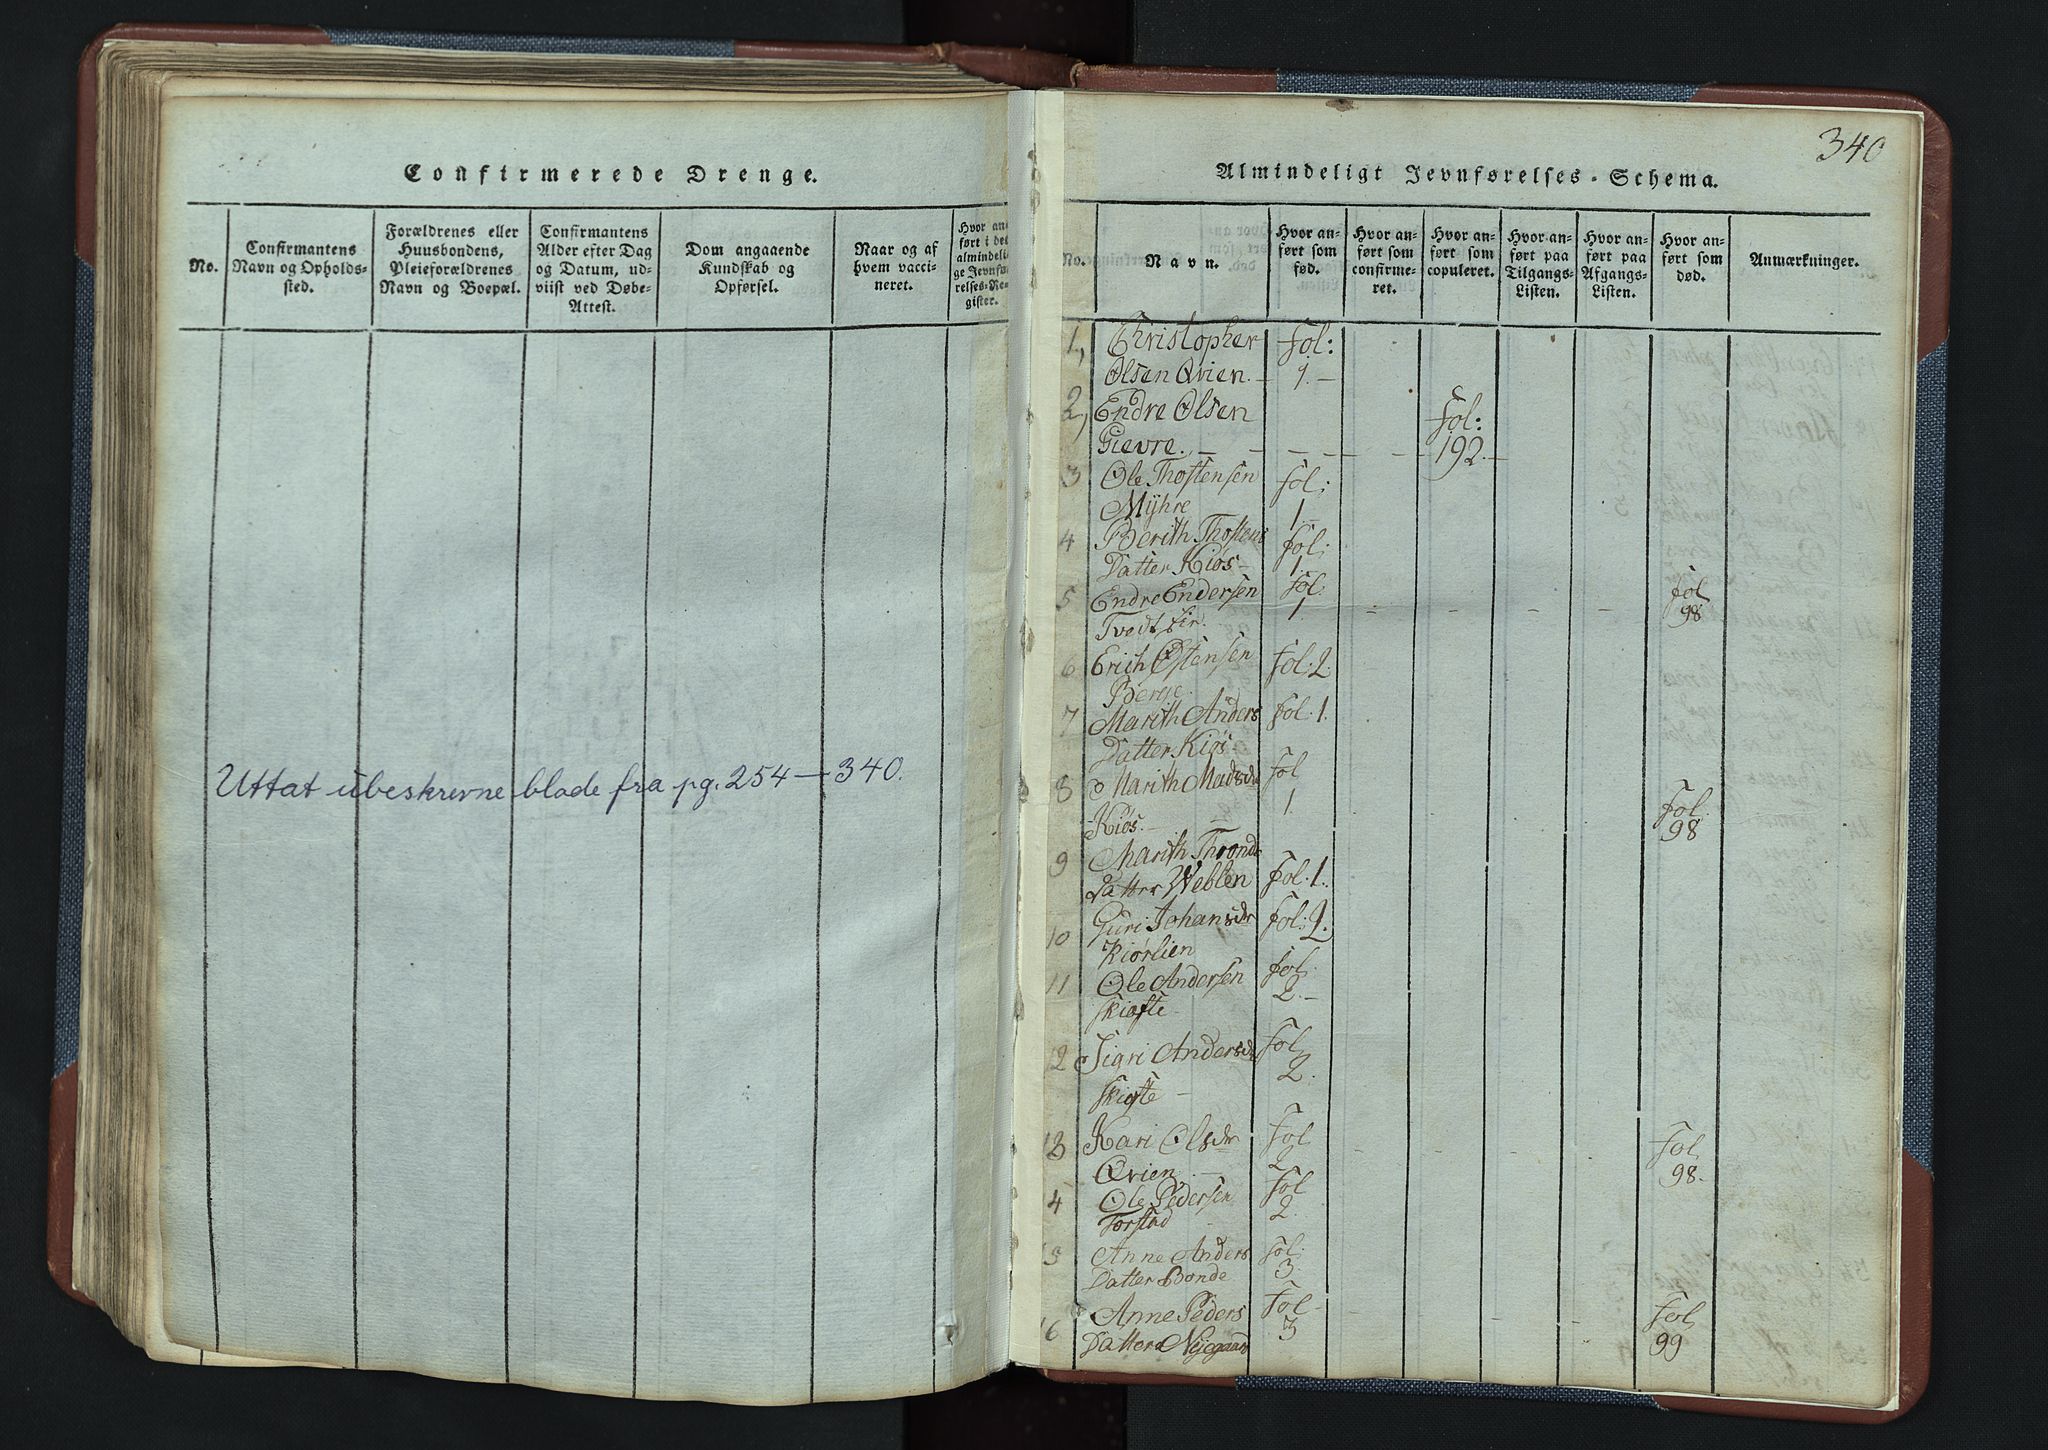 Confirmerede Drenge.
No.
Confirmantens
Navn og Opholds-
sted.
Forældrenes eller
Huusbondens,
Pleieforældrenes
Navn og Boepæl.
Confirmantens
Alder efter Dag
og Datum, ud-
viist ved Døbe-
Attest.
Dom angaaende
Kundskab og
Opførsel.
Naar og af
hvem vacci-
neret.
Hvor an
ført i det
almindeli
ge Jevnfø
relses-Re-
gister.
Uttat ubeskrevne blade fra pg. 254 — 340.
340
Almindeligt Jevnførelses-Schema.
No.
Navn.
Hvor an-
ført som
fød.
Hvor an-
ført som
confirme-
ret.
Hvor an-
ført som
copuleret.
Hvor an-
ført paa
Tilgangs-
Listen.
Hvor an-
ført paa
Afgangs-
Listen.
Hvor an-
ført som
død.
Anmærkninger.
1, Christopher Fol:
Olsen Qvien. - 1. -
2, Endre Olsen Fol:
Gievre. - - - - - 192. -
3 Ole Thostensen Fol:
Myhre 1. -
4 Berith Thostens Fol:
Datter Kiøs - 1.
5 Endre Endersen Fol: Fol
Tvedt 1. - - - - 98
6 Erich Østensen Fol. 2
Berge
7 Marith Anders Fol. 1.
Datter Kiøs -
8 Marith Madsdr Fol Fol.
Kiøs. - 1. 98
9 Marith Thronds
Datter Weblen Fol. 1.
10 Guri Johansdr Fol: 2.
Kiørlien
11 Ole Andersen Fol:
Skiøfte - 2. -
12 Sigri Andersdr Fol
Skiøfte - 2.
13 Kari Olsdr Fol Fol
Qvien 2 98.
4 Ole Pedersen Fol
Forstad 2.
5 Anne Anders Fol:
Datter Bonde 3
6 Anne Peders Fol - Fol
Datter Nygaard 3 99